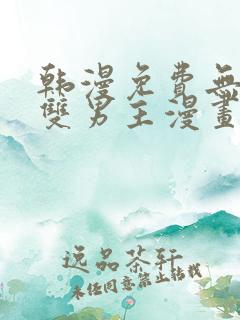 韩漫免費無
雙男主漫畫
逸品茶轩
未经同意禁止转载